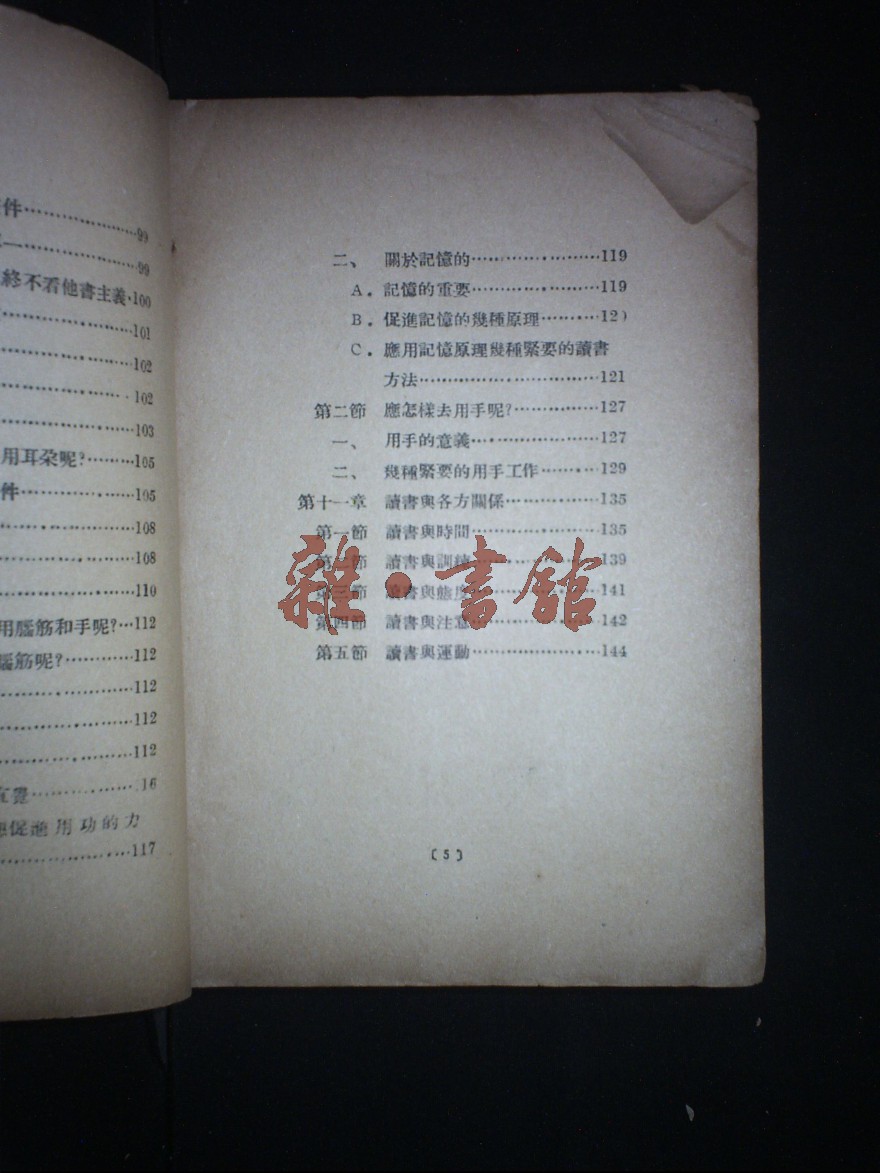 件………………99
一………………99
終不看他書主義·100
………………101
………………102
………………102
………………103
用耳朶呢?………105
件………………105
………………108
………………108
………………110
用腦筋和手呢?…112
腦筋呢?…………112
………………112
………………112
………………112
………………16
促進用功的力
………………117
二、 關於記憶的………………119
A. 記憶的重要………………119
B. 促進記憶的幾種原理………12)
C. 應用記憶原理幾種緊要的讀書
方法………………………121
第二節 應怎樣去用手呢?……………127
一、 用手的意義………………127
二、 幾種緊要的用手工作………129
第十一章 讀書與各方關係……………135
第一節 讀書與時間………………135
第二節 讀書與訓練………………139
第三節 讀書與態度………………141
第四節 讀書與注意………………142
第五節 讀書與運動………………144
雜·書館
〔5〕